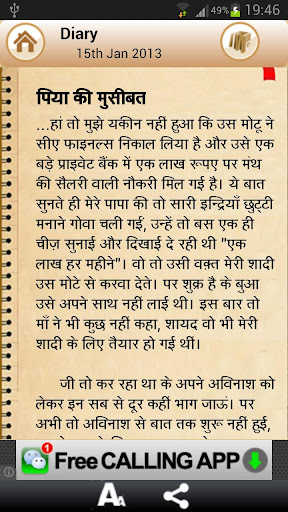 19:46
Diary
15th Jan 2013
पिया की मुसीबत
...हां तो मुझे यकीन नहीं हुआ कि उस मोटू ने
सीए फाइनल्स निकाल लिया है और उसे एक
बड़े प्राइवेट बैंक में एक लाख रूपए पर मंथ
की सैलरी वाली नौकरी मिल गई है। ये बात
सुनते ही मेरे पापा की तो सारी इन्द्रियाँ छुट्टी
मनाने गोवा चली गई, उन्हें तो बस एक ही
चीज़ सुनाई और दिखाई दे रही थी "एक
लाख हर महीने"। वो तो उसी वक़्त मेरी शादी
उस मोटे से करवा देते। पर शुक्र है के बुआ
उसे अपने साथ नहीं लाई थी। इस बार तो
माँ ने भी कुछ नहीं कहा, शायद वो भी मेरी
शादी के लिए तैयार हो गई थीं।
जी तो कर रहा था के अपने अविनाश को
लेकर इन सब से दूर कहीं भाग जाऊं। पर
अभी तो अविनाश से बात तक शुरू नहीं हुई,
1
Free CALLING APP
AA